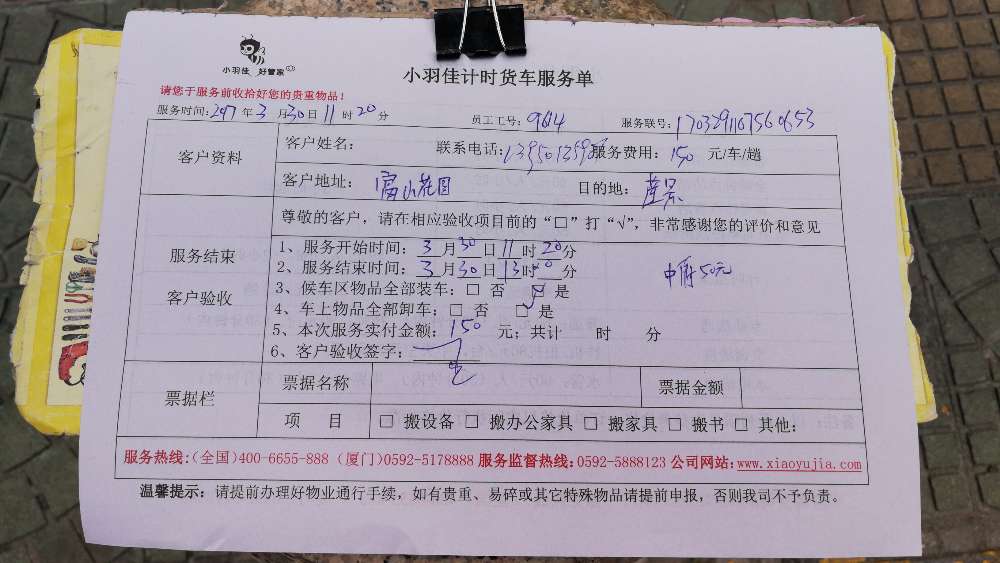 小羽佳 好管家
小羽佳计时货车服务单
请您于服务前收拾好您的贵重物品！
服务时间：2017 年 3 月 30 日 11 时 20 分 员工工号： 服务联号：
客户资料
客户姓名： 联系电话： 服务费用：150 元/车/趟
客户地址：富山花园 目的地：
服务结束
客户验收
尊敬的客户，请在相应验收项目前的“□”打“√”，非常感谢您的评价和意见
1、服务开始时间：3 月 30 日 11 时 20 分
2、服务结束时间：3 月 30 日 13 时 分
3、候车区物品全部装车：□ 否 ☑ 是
4、车上物品全部卸车：□ 否 ☑ 是
5、本次服务实付金额：150 元；共计 时 分
6、客户验收签字：
50元
票据栏
票据名称 票据金额
项 目 □ 搬设备 □ 搬办公家具 □ 搬家具 □ 搬书 □ 其他：
服务热线：（全国）400-6655-888（厦门）0592-5178888 服务监督热线：0592-5888123 公司网站：www.xiaoyujia.com
温馨提示：请提前办理好物业通行手续，如有贵重、易碎或其它特殊物品请提前申报，否则我司不予负责。